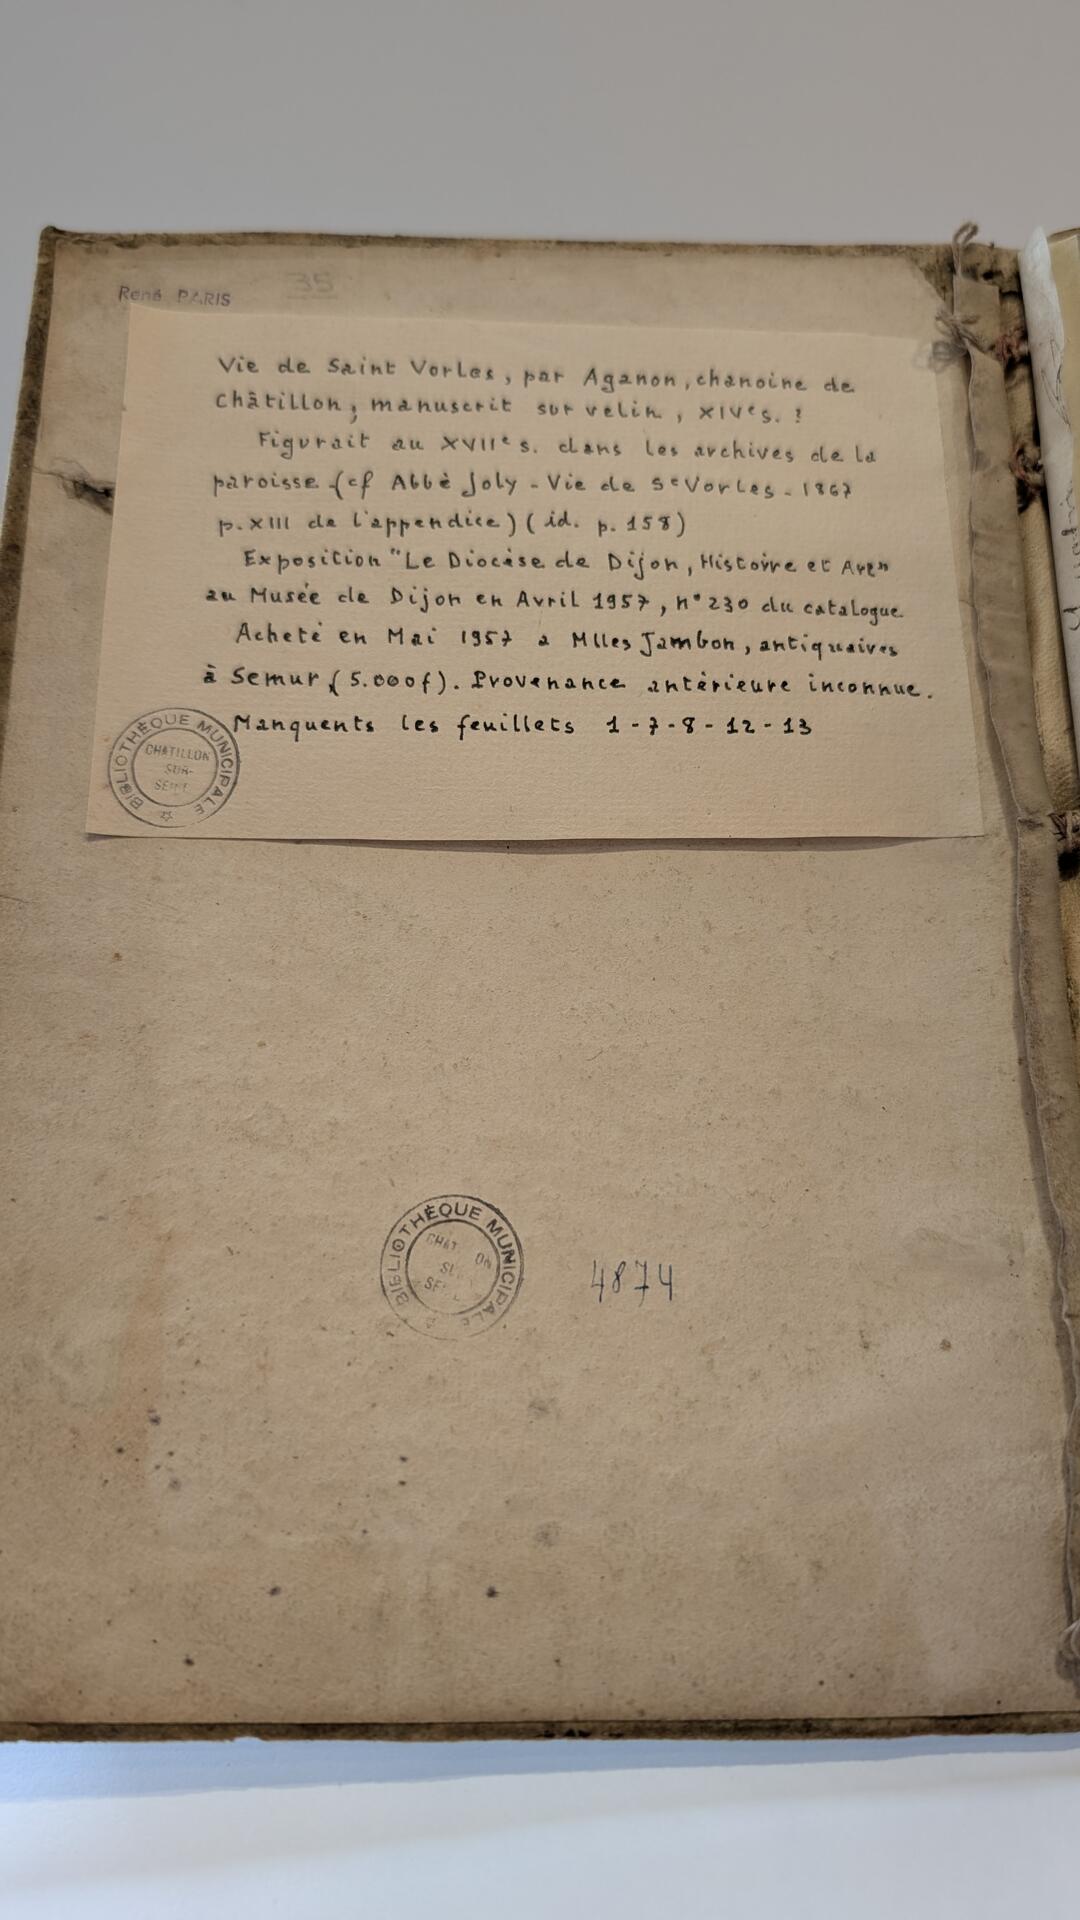 René PARIS
35
Vie de Saint Vorles, par Aganon, chanoine de
Châtillon, manuscrit sur velin, XIVe s. ?
Figurait au XVIIe s. dans les archives de la
paroisse (cf Abbé Joly - Vie de St Vorles - 1867
p. XIII de l'appendice) (id. p. 158)
Exposition "Le Diocèse de Dijon, Histoire et Art"
au Musée de Dijon en Avril 1957, n° 230 du catalogue
Acheté en Mai 1957 a Mlles Jambon, antiquaires
à Semur (5.000f). Provenance antérieure inconnue.
Manquents les feuillets 1-7-8-12-13
BIBLIOTHÈQUE MUNICIPALE
CHATILLON
SUR-
BIBLIOTHÈQUE MUNICIPALE
4874